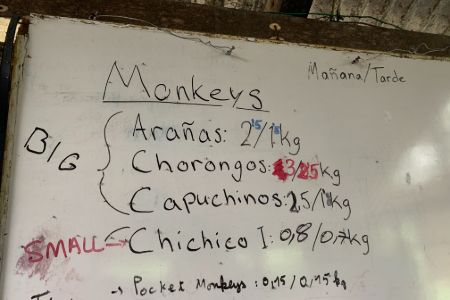 Mañana/Tarde
Monkeys
BIG
Arañas: 2'5/1'5kg
Chorongos: 3/2'5kg
Capuchinos: 2,5/1'kg
SMALL → Chichico I: 0,8/0,7kg
→ Pocket Monkeys: 0,15/0,15kg